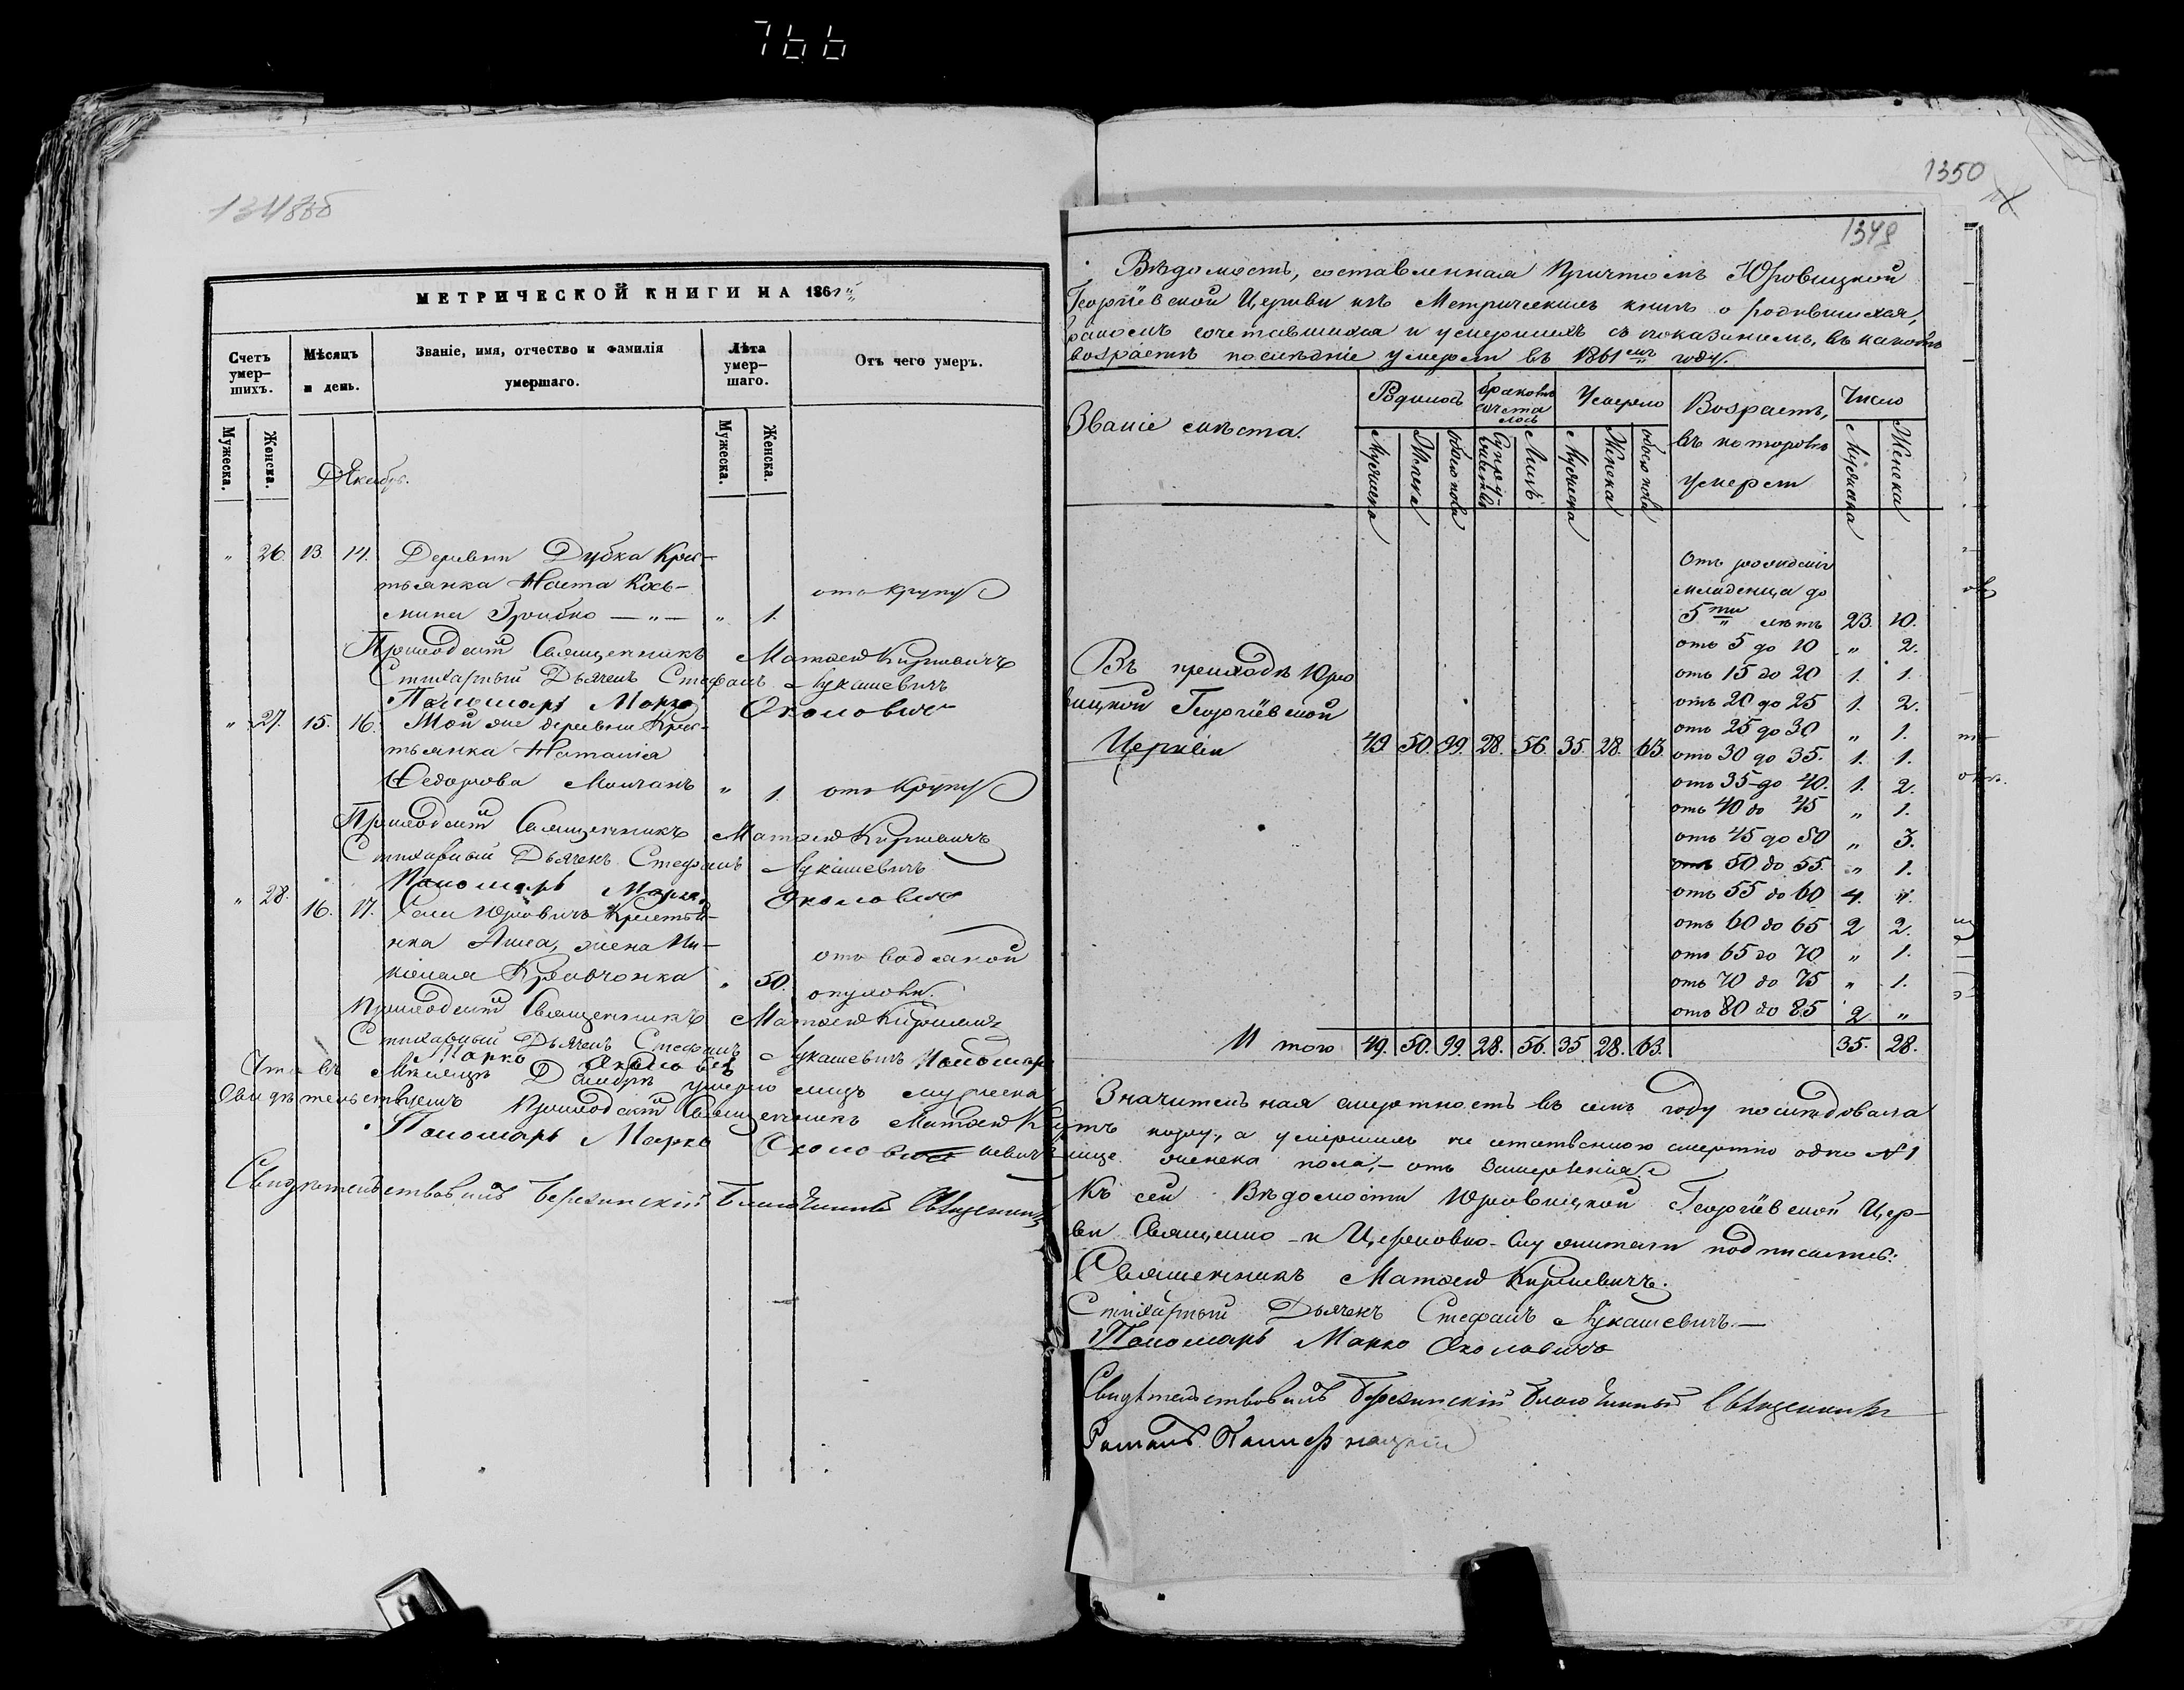 766
1348об
МЕТРИЧЕСКОЙ КНИГИ НА 1861й
Счетъ умер-шихъ.
Мѣсяцъ и день.
Званіе, имя, отчество и фамилія умершаго.
Лѣта умер-шаго.
Отъ чего умеръ.
Мужеска.
Женска.
Мужеска.
Женска.
Декабрь.
„ 26. 13 14. Деревни Дубка Крес-
тьянка Наста Кось-
мина Грибко — „ — „ 1. отъ крупу
Приходскій Священникъ Матѳей Киркевичъ
Стихарный Дьячекъ Стефанъ Лукашевичъ
Пономарь Марко Околовичъ
„ 27. 15. 16. Той же деревни Крес-
тьянка Наталія
Ѳедорова Молчанъ „ 1. отъ крупу
Приходскій Священникъ Матѳей Киркевичъ
Стихарный Дьячекъ Стефанъ Лукашевичъ
Пономарь Марко Околовичъ
„ 28. 16. 17. Села Юровичъ Крестья-
нка Анна, жена Ни-
колая Кравчонка „ 50. отъ водяной
опухоли.
Приходскій Священникъ Матѳей Киркевичъ
Стихарный Дьячекъ Стефанъ Лукашевичъ Пономарь
Марко Околовичъ
Что въ Мѣсяцѣ Декабрѣ умерло лицъ мужеска
Свидѣтельствуемъ Приходскій Священникъ Матѳей
Пономарь Марко
Свидѣтельствовалъ Березинскій Благочинный Священникъ
1350
1349
Вѣдомость, составленная Причтомъ Юровицкой
Георгіевской Церкви изъ Метрическихъ книгъ о родившихся,
бракомъ сочетавшихся и умершихъ съ показаніемъ, въ какомъ
возрастѣ послѣдніе умерли въ 1861мъ году.
Званіе мѣста.
Родилось
бракомъ сочеталось
Умерло
Возрастъ, въ которомъ умерли
Число
Мужеска
Женска
обоего пола
Супружествъ
Лицъ
Мужеска
Женска
обоего пола
Мужеска
Женска
Отъ рожденія
младенца до
5ти лѣтъ 23. 10.
отъ 5 до 10 „ 2.
отъ 15 до 20 1. 1.
отъ 20 до 25 1. 2.
отъ 25 до 30 „ 1.
Въ приходѣ Юро
вицкой Георгіевской
Церкви 49 50. 99. 28. 56. 35. 28. 63.
отъ 30 до 35. 1. 1.
отъ 35 до 40. 1. 2.
отъ 40 до 45 „ 1.
отъ 45 до 50 „ 3.
отъ 50 до 55. „ 1.
отъ 55 до 60 4. „
отъ 60 до 65 2 2.
отъ 65 до 70 „ 1.
отъ 70 до 75 „ 1.
отъ 80 до 85 2 „
Итого 49. 50. 99. 28. 56. 35 28. 63. 35. 28.
Значительная смертность въ семъ году послѣдовала
а умершихъ не естественною смертію одно № 1
лице женска пола, — отъ замерзенія
Къ сей Вѣдомости Юровицкой Георгіевской Цер-
кви Священно- и Церковно-Служители подписались:
Священникъ Матѳей Киркевичъ.
Стихарный Дьячекъ Стефанъ Лукашевичъ. —
Пономарь Марко Околовичъ
Свидѣтельствовалъ Березинскій Благочинный Священникъ
Романъ